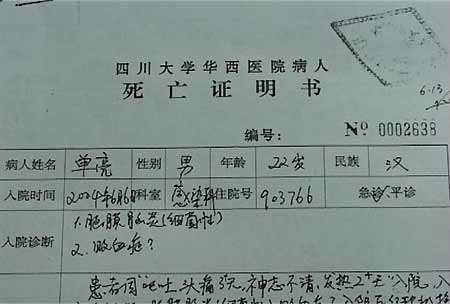 四川大学华西医院病人
死亡证明书
6.13
编号: Nº 0002638
病人姓名 单亮 性别 男 年龄 22岁 民族 汉
入院时间 2004年6月6日 科室 感染科 住院号 903766 急诊、平诊
入院诊断 1. 化脓脑炎(细菌性)
2. 败血症?
患者因"呕吐、头痛3天,神志不清、发热2+天"入院,入